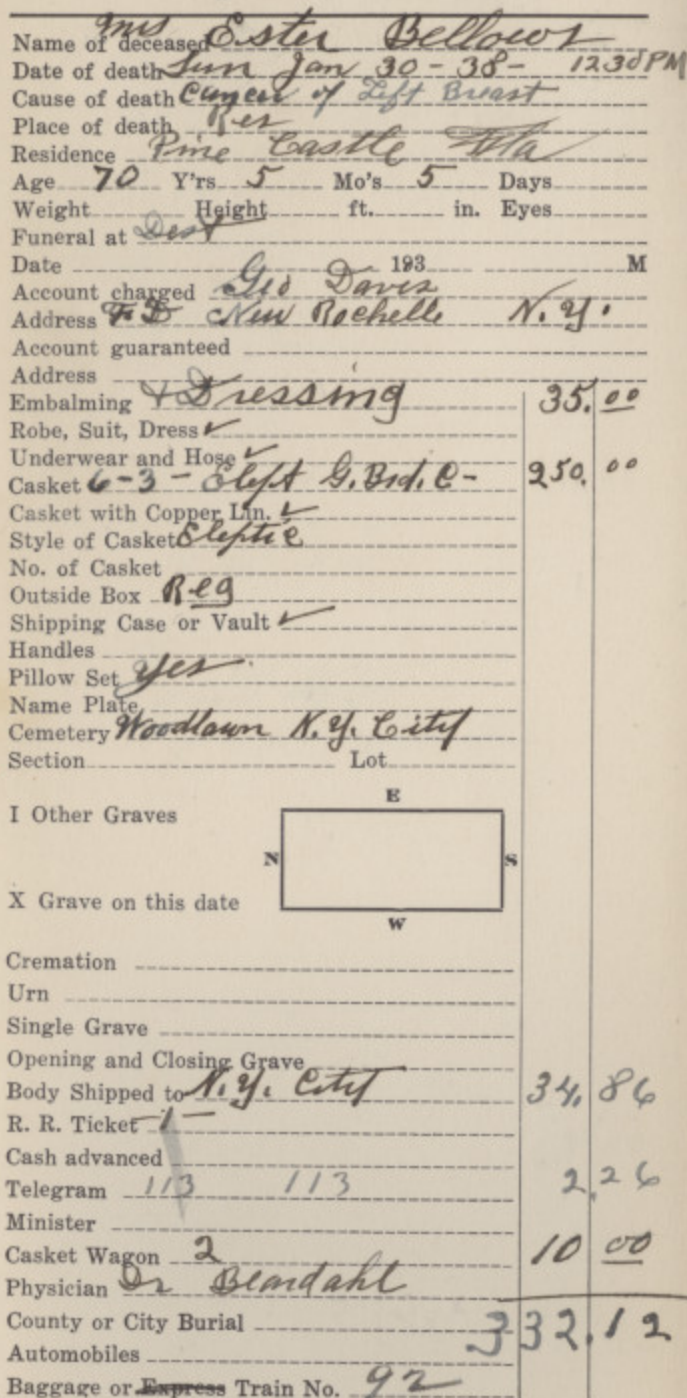 Name of deceased Mrs Ester Bellows
Date of death Sun Jan 30 - 38 - 1230 PM
Cause of death Cancer of Left Breast
Place of death Res
Residence Pine Castle Fla
Age 70 Y'rs 5 Mo's 5 Days
Weight Height ft. in. Eyes
Funeral at Dest
Date 193 M
Account charged Geo Davis
Address F D New Rochelle N.Y.
Account guaranteed
Address
Embalming & Dressing 35.00
Robe, Suit, Dress ✓
Underwear and Hose ✓
Casket 6-3 - Elept G. Brd. C - 250.00
Casket with Copper Lin. ✓
Style of Casket Eleptic
No. of Casket
Outside Box Reg
Shipping Case or Vault ✓
Handles
Pillow Set yes
Name Plate
Cemetery Woodlawn N.Y. City
Section Lot
E
I Other Graves
N S
X Grave on this date
W
Cremation
Urn
Single Grave
Opening and Closing Grave
Body Shipped to N.Y. City 34.86
R. R. Ticket - 1 -
Cash advanced
Telegram 113 113 2.26
Minister
Casket Wagon 2 10 00
Physician Dr
County or City Burial 332.12
Automobiles
Baggage or Express Train No. 92